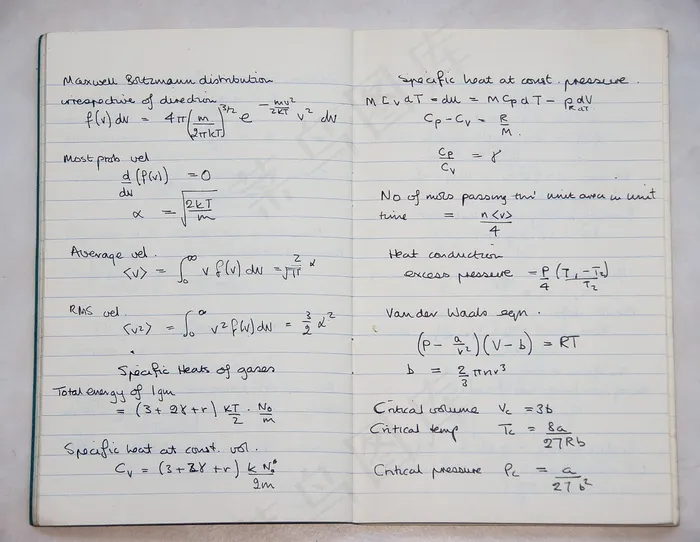 Maxwell Boltzmann distribution
irrespective of direction
f(v) dv = 4π(m/2πkT)^3/2 e^-mv²/2kT v² dv
Most prob vel
d/dv (f(v)) = 0
α = √(2kT/m)
Average vel.
<v> = ∫₀^∞ v f(v) dv = 2/√π α
RMS vel.
<v²> = ∫₀^∞ v² f(v) dv = 3/2 α²
Specific Heats of gases
Total energy of 1gm
= (3 + 2γ + r) kT/2 · N₀/m
Specific heat at const. vol.
Cv = (3 + 2γ + r) k N₀/2m
Specific heat at const. pressure.
M Cv dT = du = M Cp dT - p dV
R dT
Cp - Cv = R/M
Cp/Cv = γ
No of mols passing thro' unit area in unit
time = n<v>/4
Heat conduction
excess pressure = P/4 (T₁ - T₂)/T₂
Van der Waals eqn.
(P - a/v²)(V - b) = RT
b = 2/3 πnr³
Critical volume Vc = 3b
Critical temp Tc = 8a/27Rb
Critical pressure Pc = a/27b²